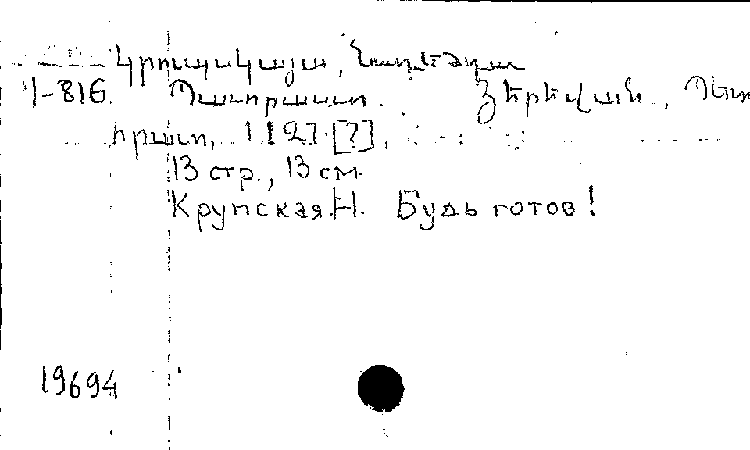 Կրուպսկայա, Նադեժդա
Կ-816. Պատրաստ. Յերեվան, Պետ
հրատ, 1927 [?],
13 стр., 13 см.
Крупская Н. Будь готов!
19694